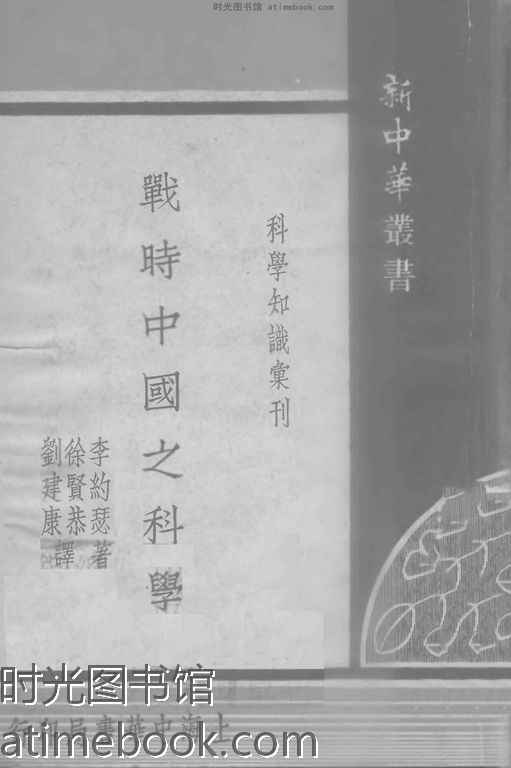 时光图书馆 atimebook.com
新中華叢書
科學知識彙刊
戰時中國之科學
李約瑟著
徐賢恭
劉建康譯
时光图书馆
上海中華書局印行
atimebook.com